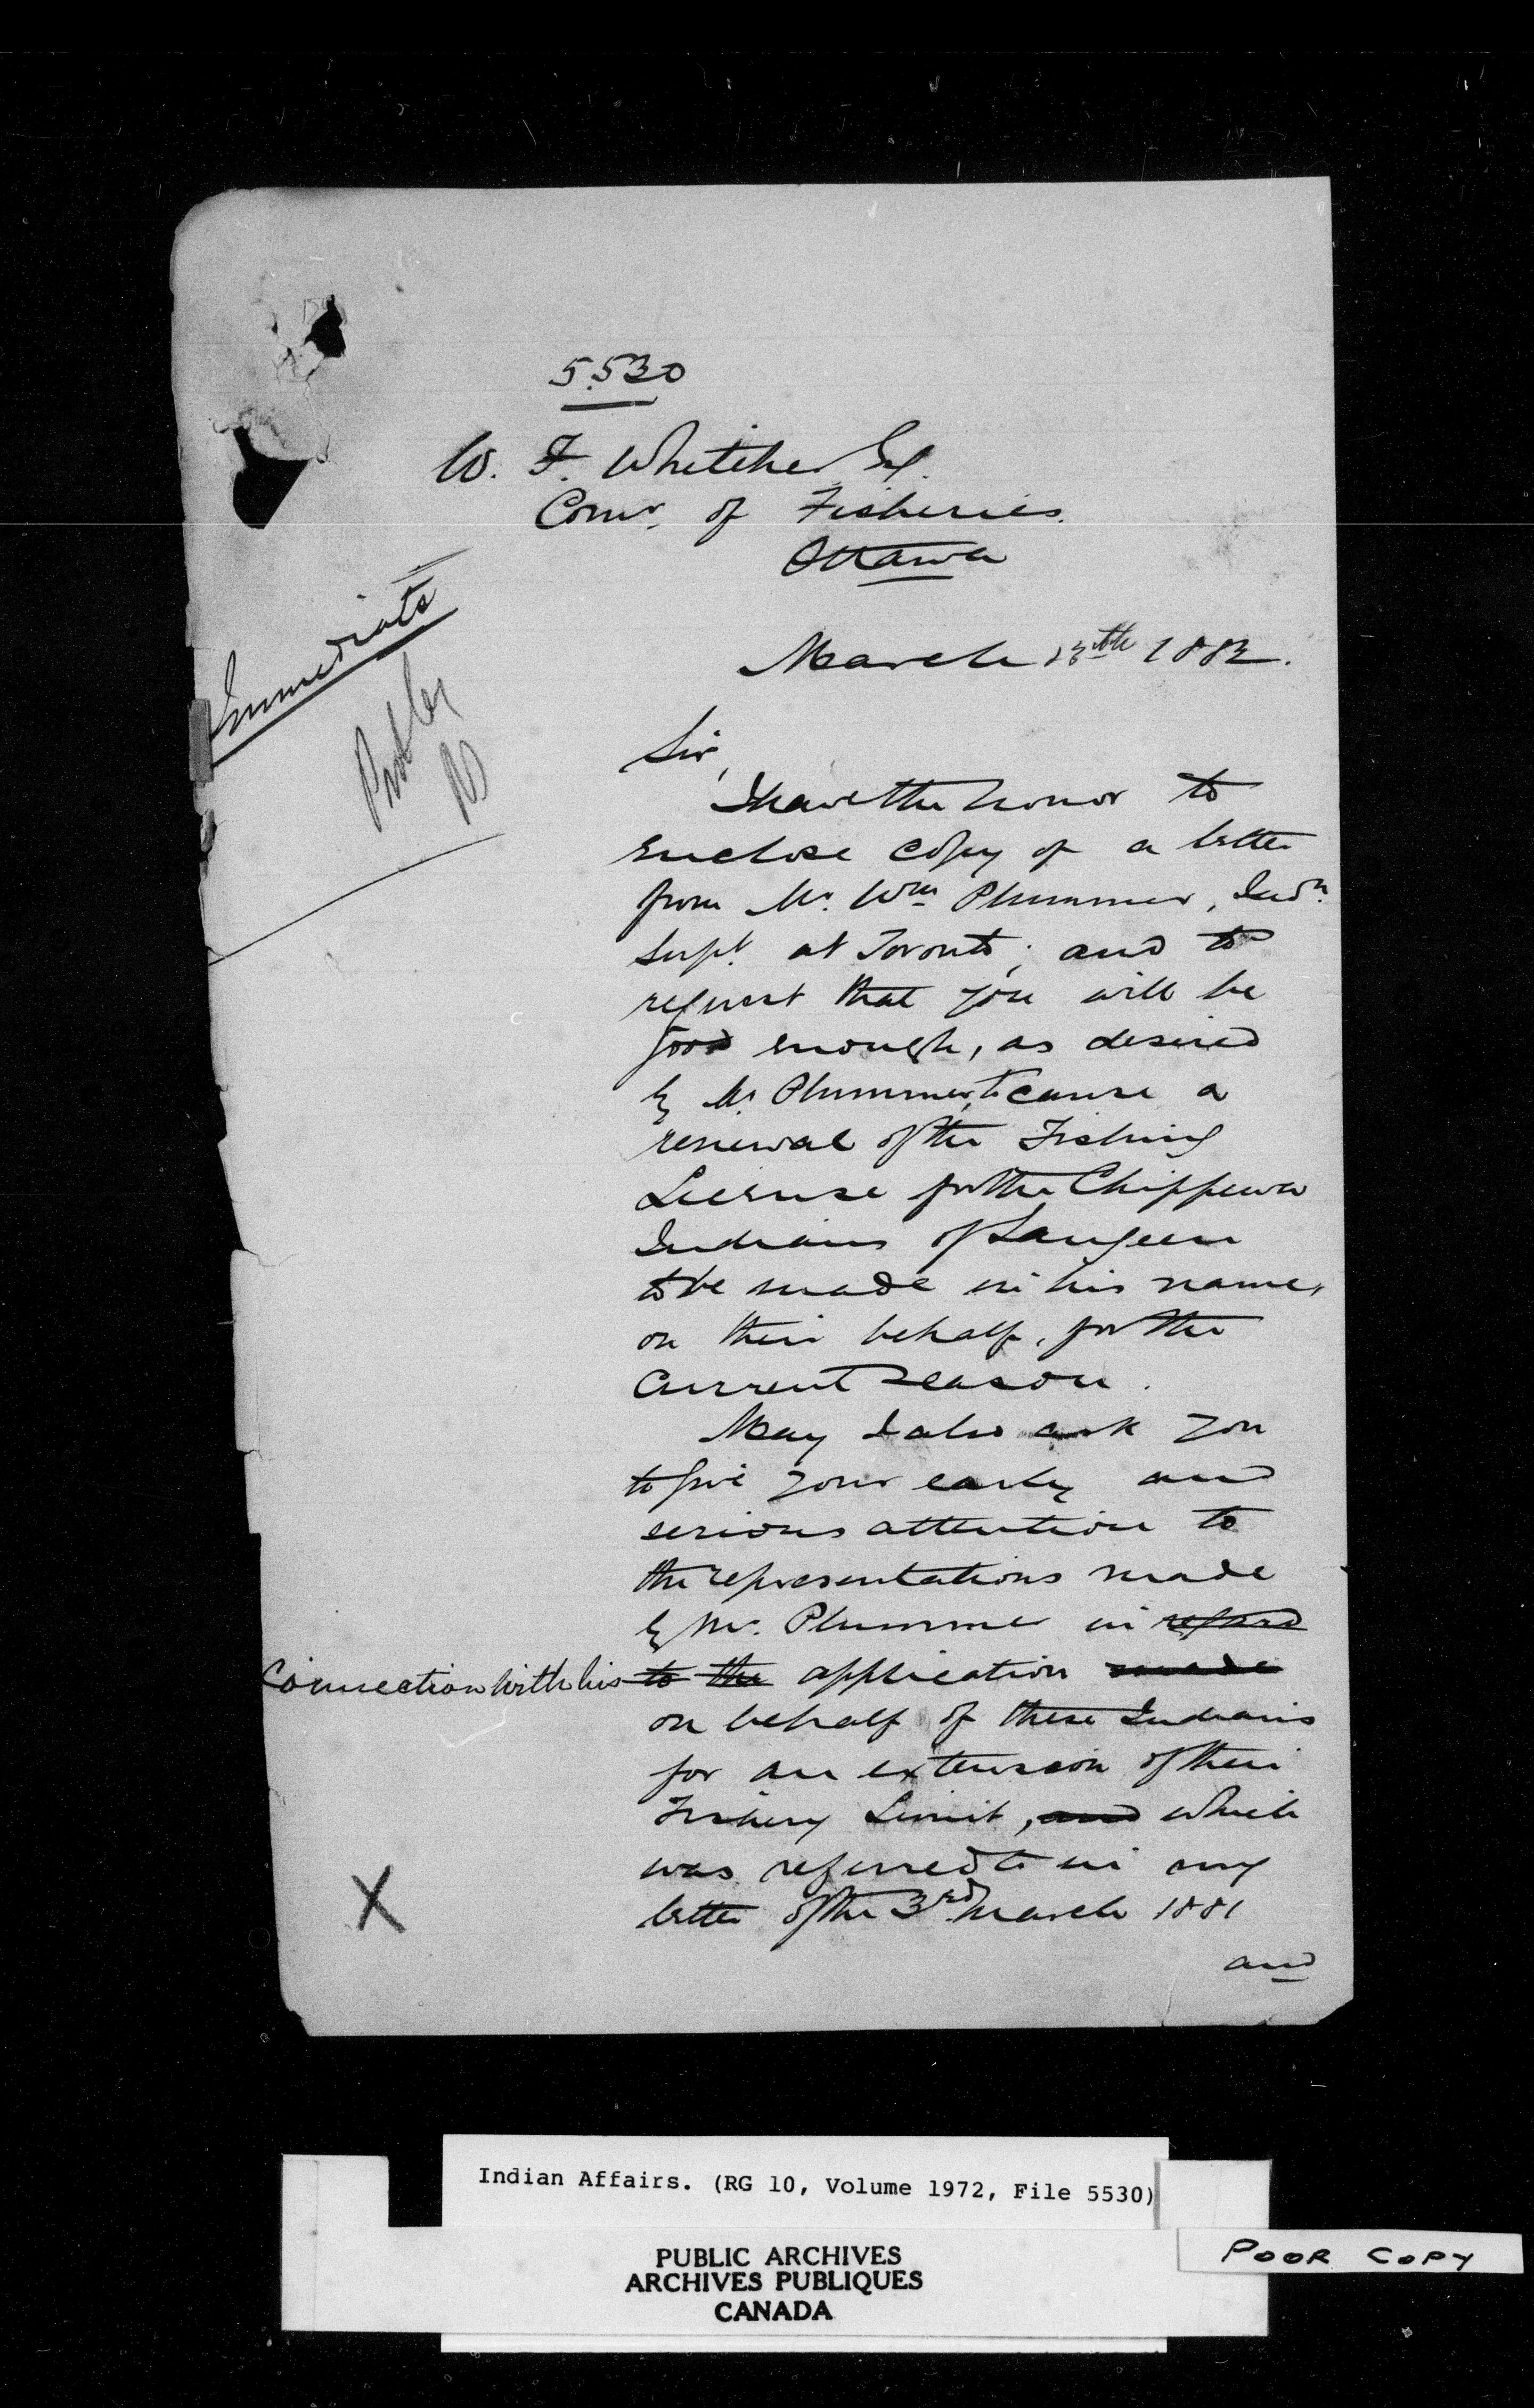 5530
W. F. Whitcher Esq.
Comr. of Fisheries.
Ottawa
Immediate
March 13th 1882.
Sir,
I have the honor to
enclose copy of a letter
from Mr. Wm Plummer, Indn.
Supt. at Toronto; and to
request that you will be
good enough, as desired
by Mr Plummer, to cause a
renewal of the Fishing
License for the Chippewa
Indians of Saugeen
to be made in his name,
on their behalf, for the
current season.
May I also ask you
to give your early and
serious attention to
the representations made
by Mr. Plummer in regard
connection with his to the application made
on behalf of these Indians
for an extension of their
Fishery Limit, and which
was referred to in my
letter of the 3rd March 1881
X
and
Indian Affairs. (RG 10, Volume 1972, File 5530)
PUBLIC ARCHIVES
ARCHIVES PUBLIQUES
CANADA
POOR COPY